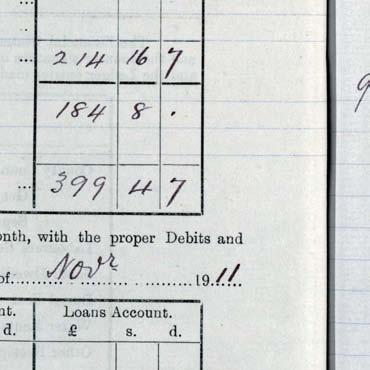 ... 214 16 7
184 8 .
... 399 4 7
onth, with the proper Debits and
of.......Novr.......1911
nt. Loans Account.
d. £ s. d.